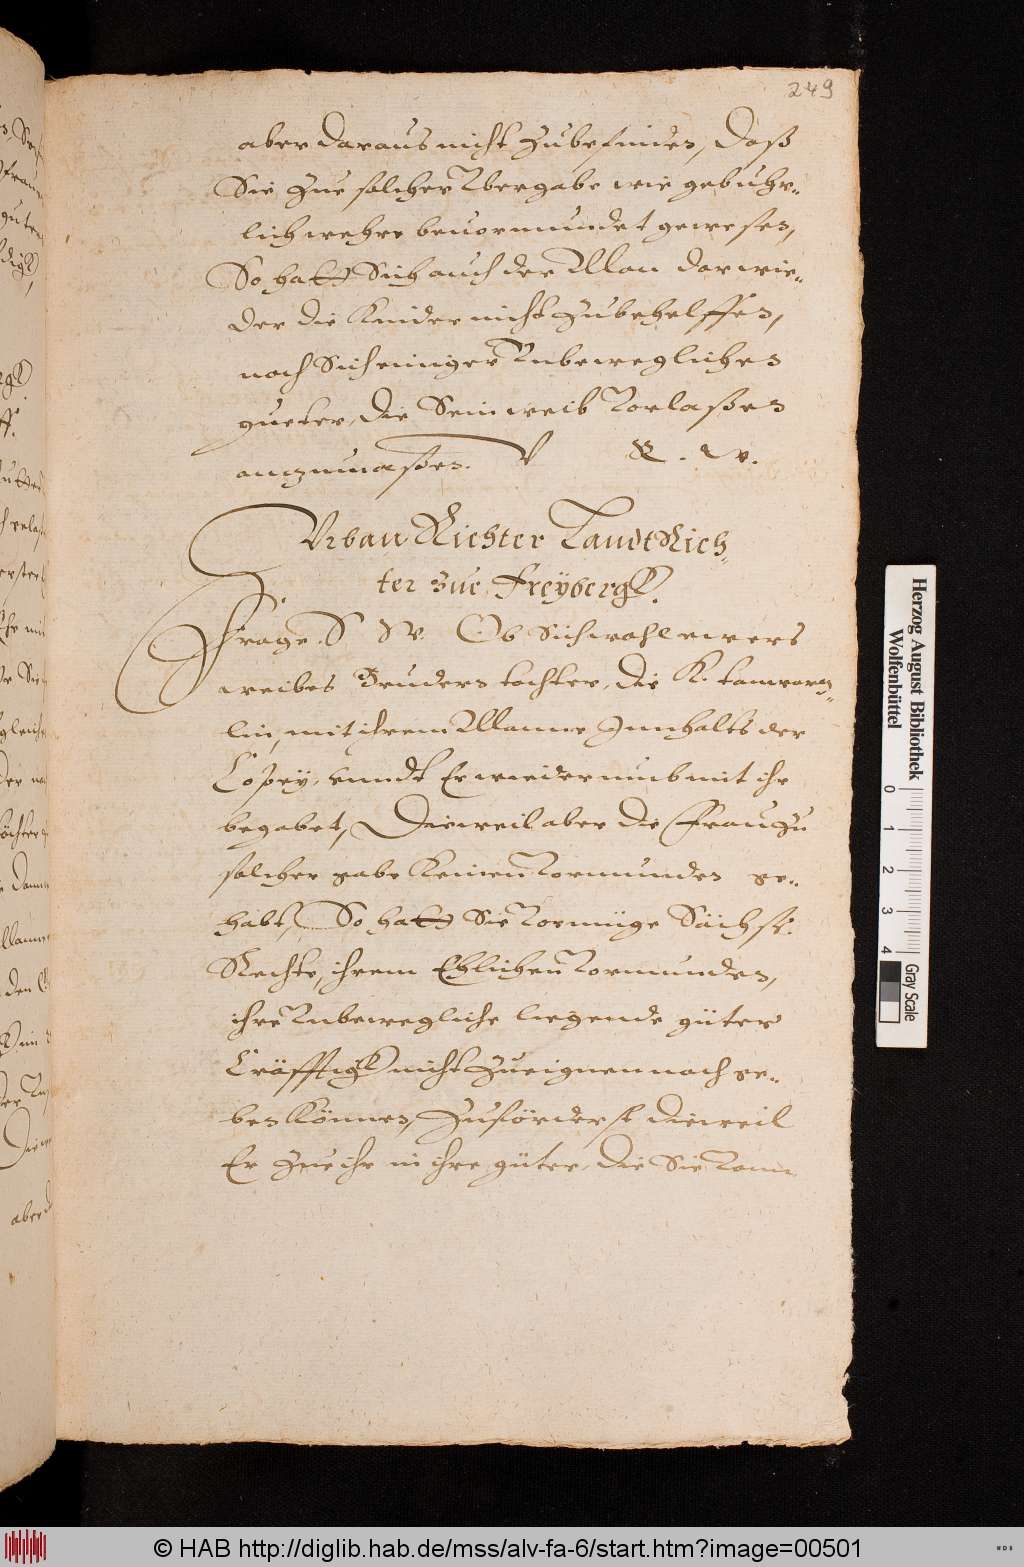 249
aber daraus nicht Zubefinden, Daß
Sie Zue solcher Vbergabe wie gebuhr-
lich wehre beuormundet gewesen,
So hatt Sich auch der Man darwie-
der die Kinder nicht Zubehelffen,
noch Sich einiger Vnbeweglichen
gueter, die Sein weib Vorlaßen
anzumaßen. V. R. W.
Vrban Richter Landt Rich-
ter zue Freybergk.
Frage. Ob Sich wohl ewers
weibes Bruders tochter, die K.
lin, mit ihrem Manne Innhalts der
Copey, vnndt Er wiederumb mit ihr
begabet, Dieweil aber die Frau Zu
solcher gabe Keinen Vormunden ge-
habt, So hatt Sie Vormüge Sächs:
Rechte, ihrem Ehlichen Vormunden,
ihre Vnbewegliche liegende güter
Cräfftigk nicht Zueignen noch ge-
ben Können, Zuförderst dieweil
Er Zue ihr in ihre güter, die Sie
Herzog August Bibliothek
Wolfenbüttel
0 1 2 3 4
Gray Scale
© HAB http://diglib.hab.de/mss/alv-fa-6/start.htm?image=00501